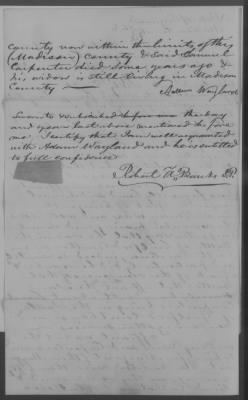 county now within the limits of this
(Madison) county & said Samuel
Carpenter died some years ago &
his widow is still living in Madison
County
Adam Wayland
Sworn to & subscribed before me the day
and year last above mentioned before
me. I certify that I am well acquainted
with Adam Wayland and he is entitled
to full confidence
Robert A. Banks J.P.